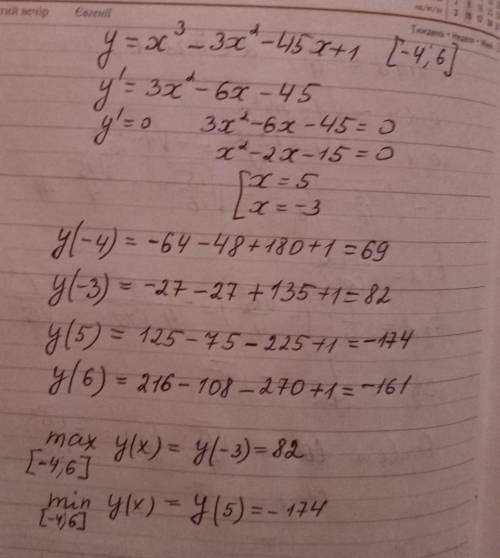 тий вечір Євгенії
Тиждень • Неделя •
y = x³ - 3x² - 45x + 1 [-4; 6]
y' = 3x² - 6x - 45
y' = 0 3x² - 6x - 45 = 0
x² - 2x - 15 = 0
[x = 5
x = -3
y(-4) = -64 - 48 + 180 + 1 = 69
y(-3) = -27 - 27 + 135 + 1 = 82
y(5) = 125 - 75 - 225 + 1 = -174
y(6) = 216 - 108 - 270 + 1 = -161
max y(x) = y(-3) = 82
[-4; 6]
min y(x) = y(5) = -174
[-4; 6]